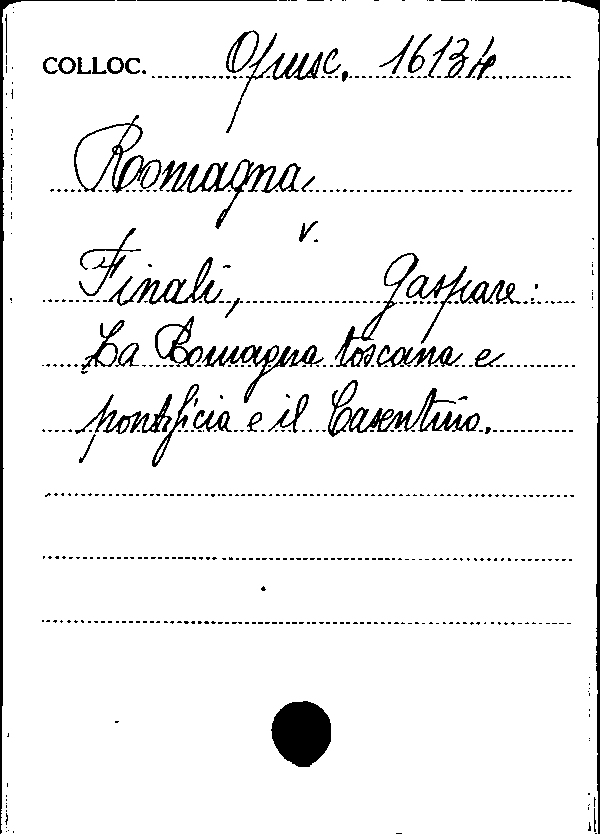 COLLOC. Opusc. 16134
Romagna
v.
Finali, Gaspare:
La Romagna toscana e
pontificia e il Casentino.